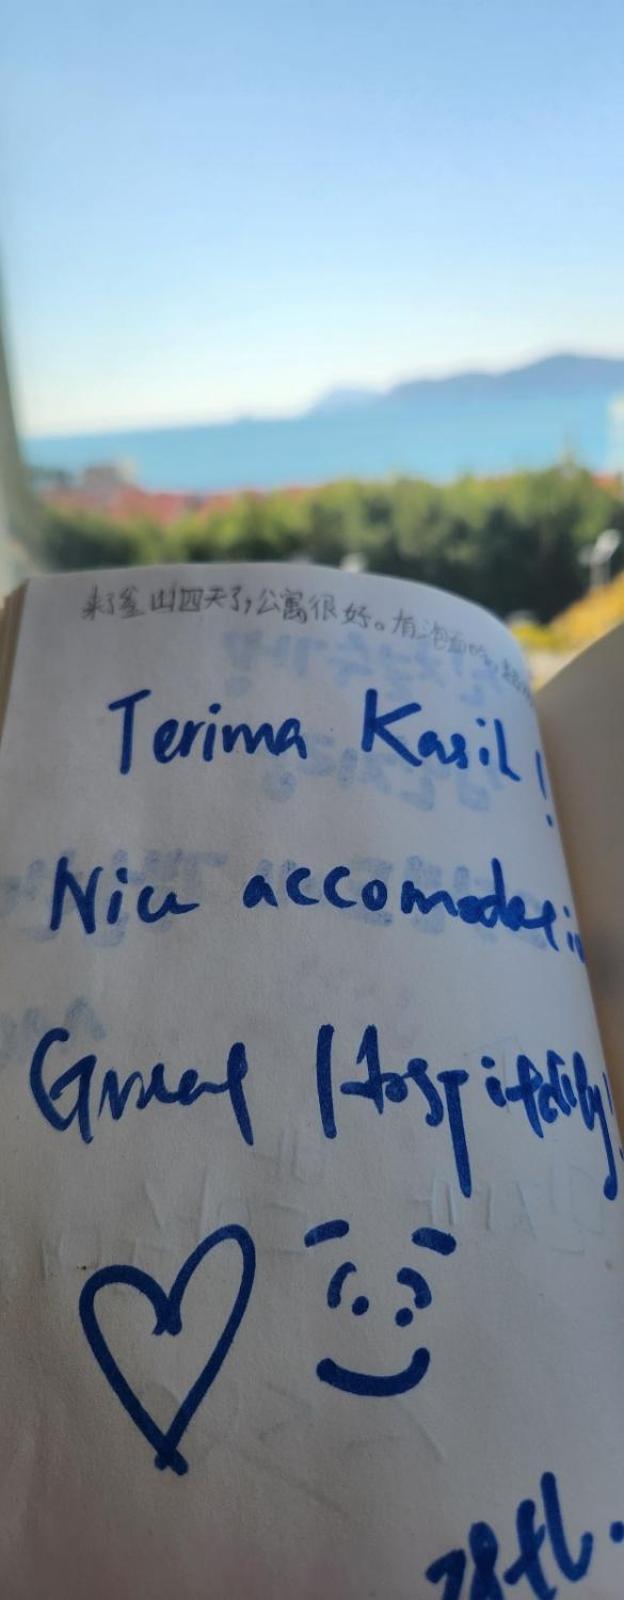 来了釜山四天了,公寓很好。有泡面吃,
Terima Kasih!
Nice accomodati
Great Hospitality!